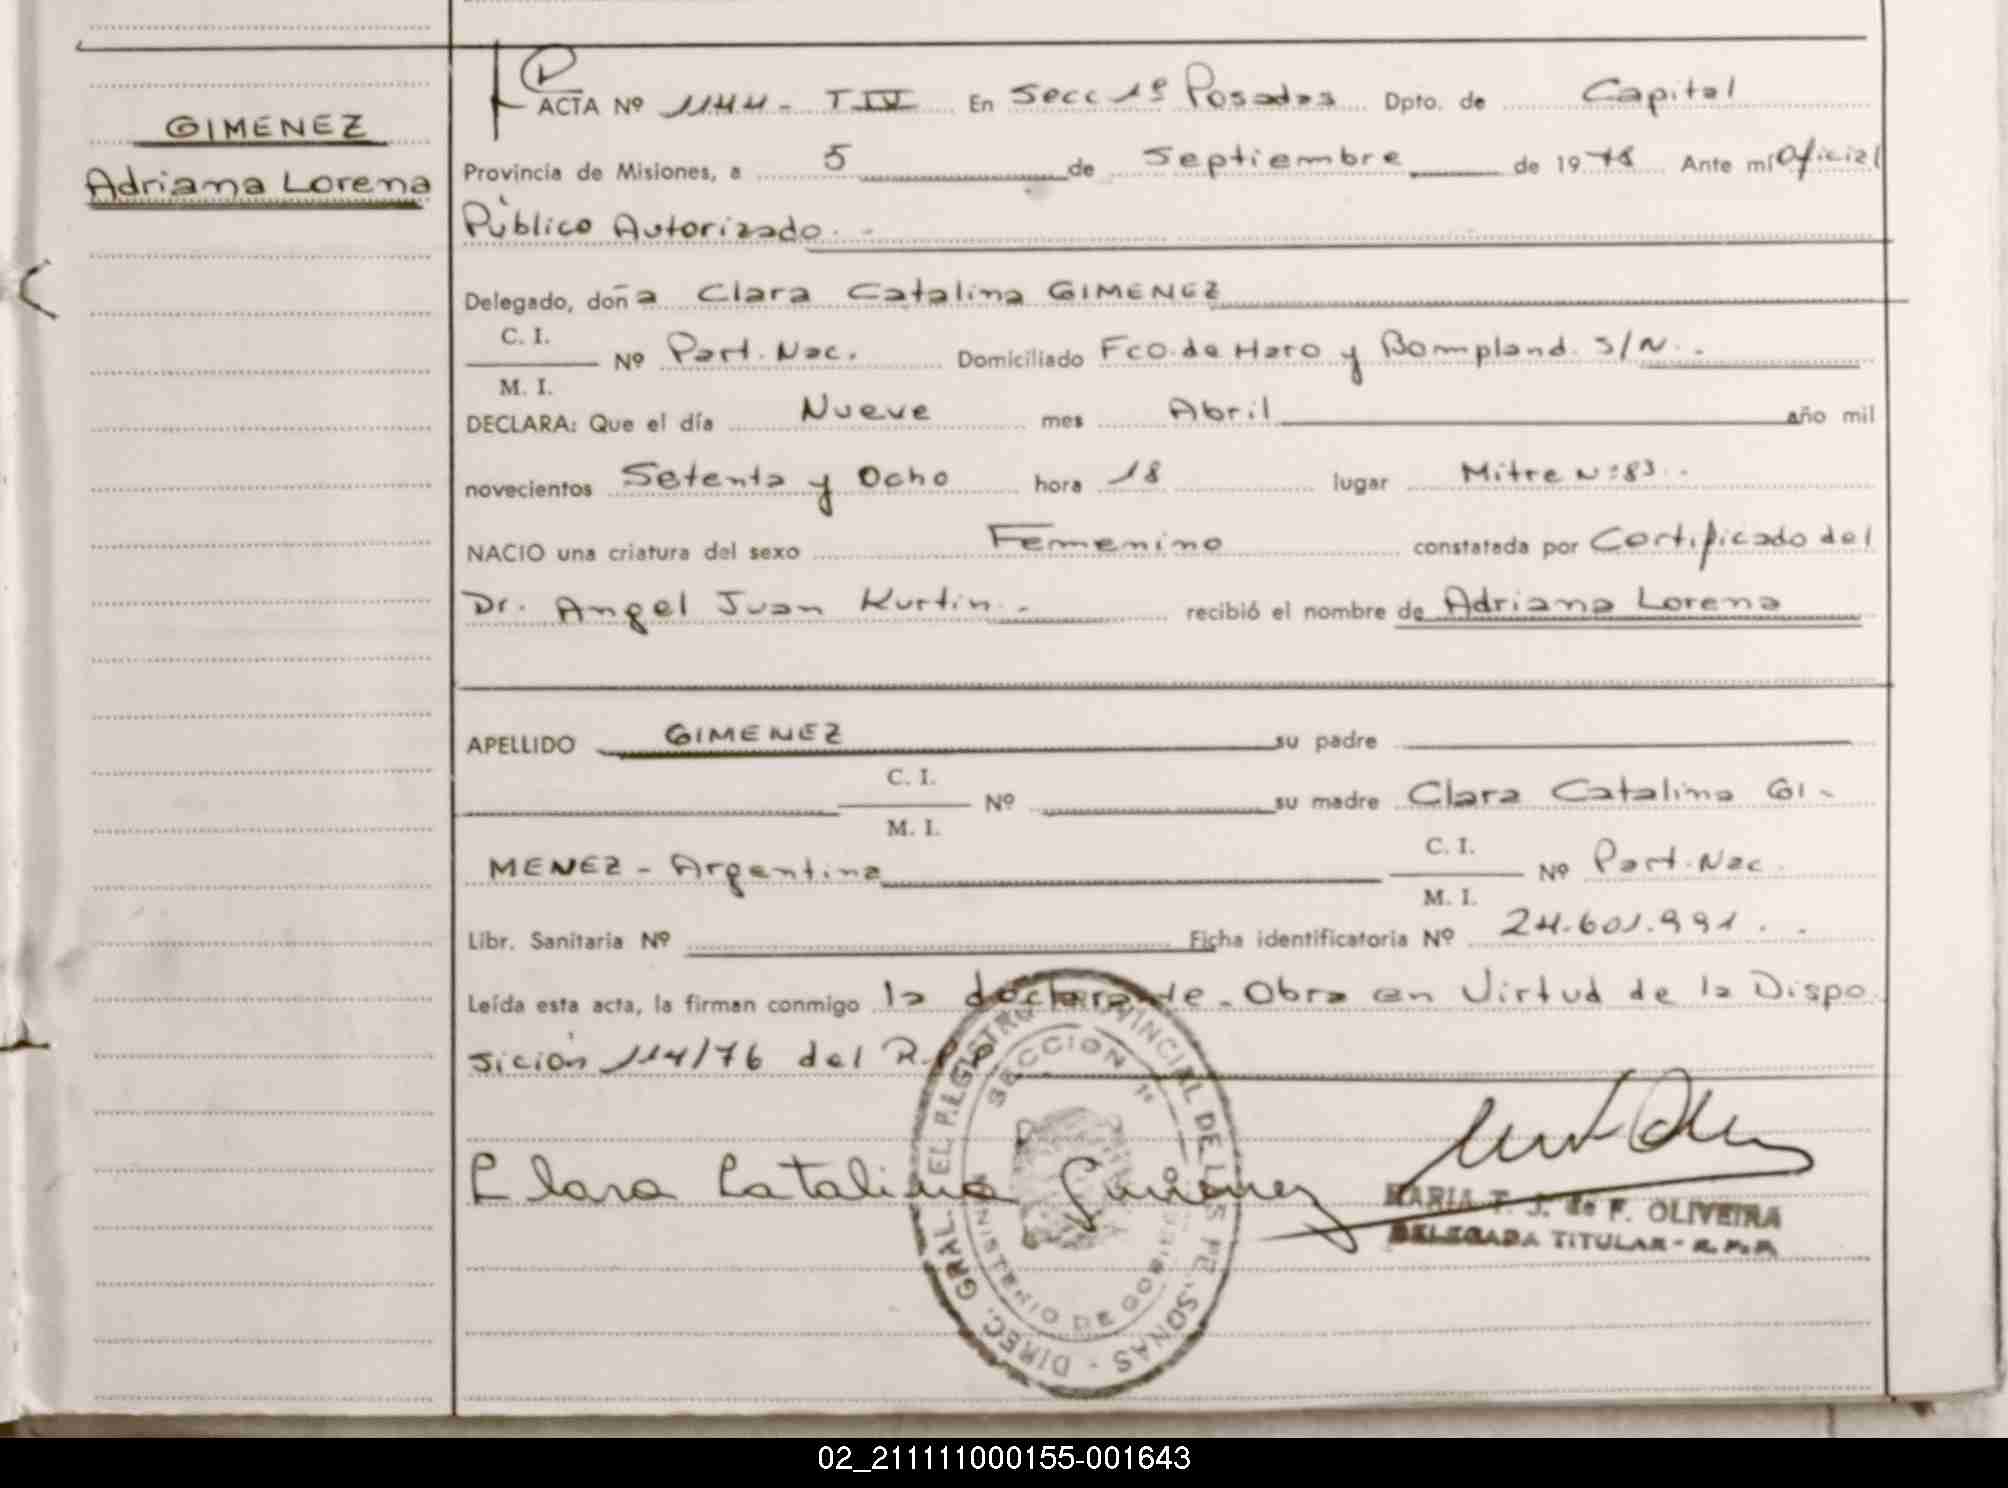 GIMENEZ
Adriana Lorena
ACTA Nº 1144 - T IV En Secc 1º Posadas Dpto. de Capital
Provincia de Misiones, a 5 de Septiembre de 1978 Ante mí Oficial
Público Autorizado.-
Delegado, doña Clara Catalina GIMENEZ
C. I.
M. I. Nº Part. Nac. Domiciliado Fco. de Haro y Bompland. S/N.-
DECLARA: Que el día Nueve mes Abril año mil
novecientos Setenta y Ocho hora 18 lugar Mitre Nº 83.-
NACIO una criatura del sexo Femenino constatada por Certificado del
Dr. Angel Juan Kurtin.- recibió el nombre de Adriana Lorena
APELLIDO GIMENEZ su padre
C. I.
M. I. Nº su madre Clara Catalina GI-
MENEZ - Argentina C. I.
M. I. Nº Part. Nac.
Libr. Sanitaria Nº Ficha identificatoria Nº 24.601.991.-
Leída esta acta, la firman conmigo la declarante - Obra en Virtud de la Dispo
sición 114/76 del R.P.P
Clara Catalina Gimenez
MARIA T. J. de F. OLIVEIRA
DELEGADA TITULAR - R.P.P
DIREC. GRAL. DEL REGISTRO PROVINCIAL DE LAS PERSONAS -
SECCION 1º
MINISTERIO DE GOBIERNO
02_211111000155-001643